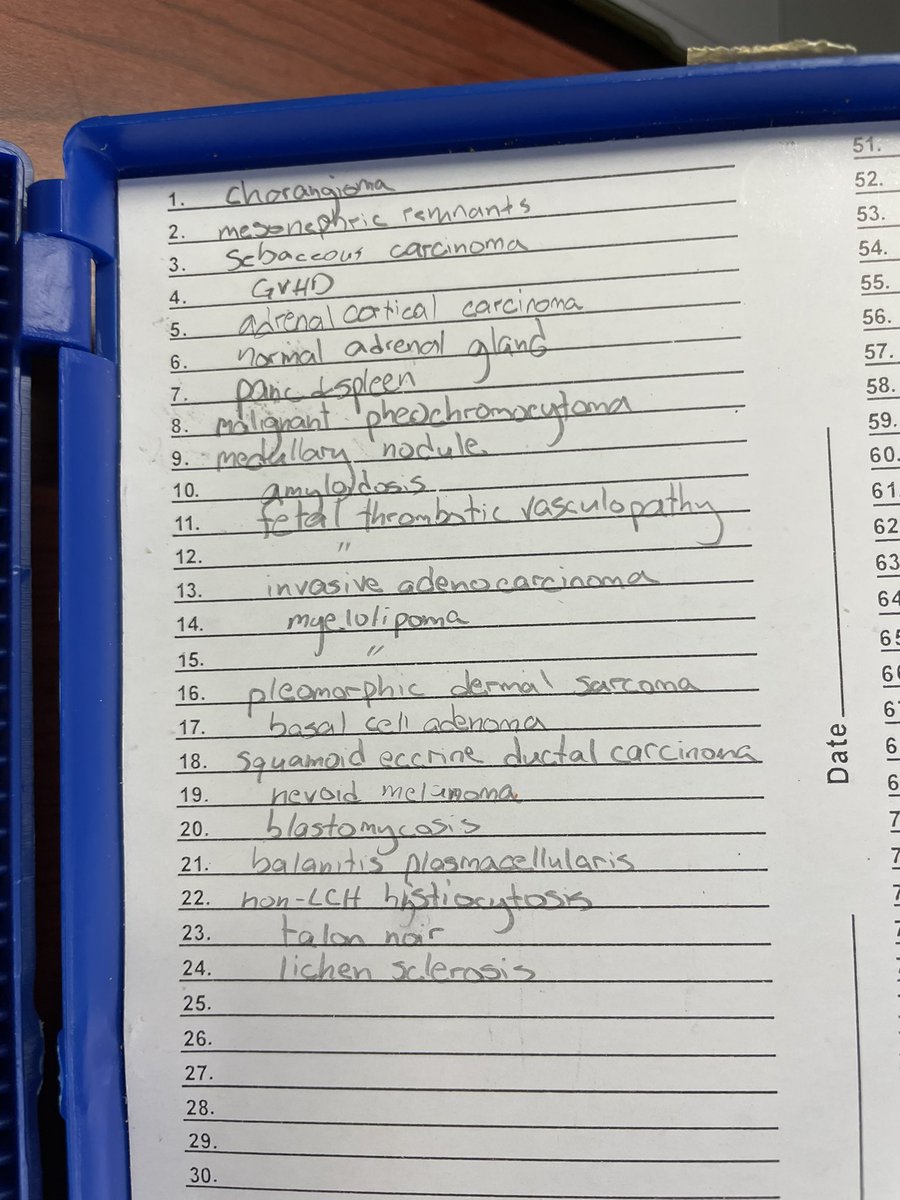 1. chorangioma
2. mesonephric remnants
3. sebaceous carcinoma
4. GVHD
5. adrenal cortical carcinoma
6. normal adrenal gland
7. panc & spleen
8. malignant pheochromocytoma
9. medullary nodule
10. amyloidosis
11. fetal thrombotic vasculopathy
12. "
13. invasive adenocarcinoma
14. myelolipoma
15. "
16. pleomorphic dermal sarcoma
17. basal cell adenoma
18. squamoid eccrine ductal carcinoma
19. nevoid melanoma
20. blastomycosis
21. balanitis plasmacellularis
22. non-LCH histiocytosis
23. talon noir
24. lichen sclerosis
25.
26.
27.
28.
29.
30.
Date
51.
52.
53.
54.
55.
56.
57.
58.
59.
60.
61.
62
63
64
65
66